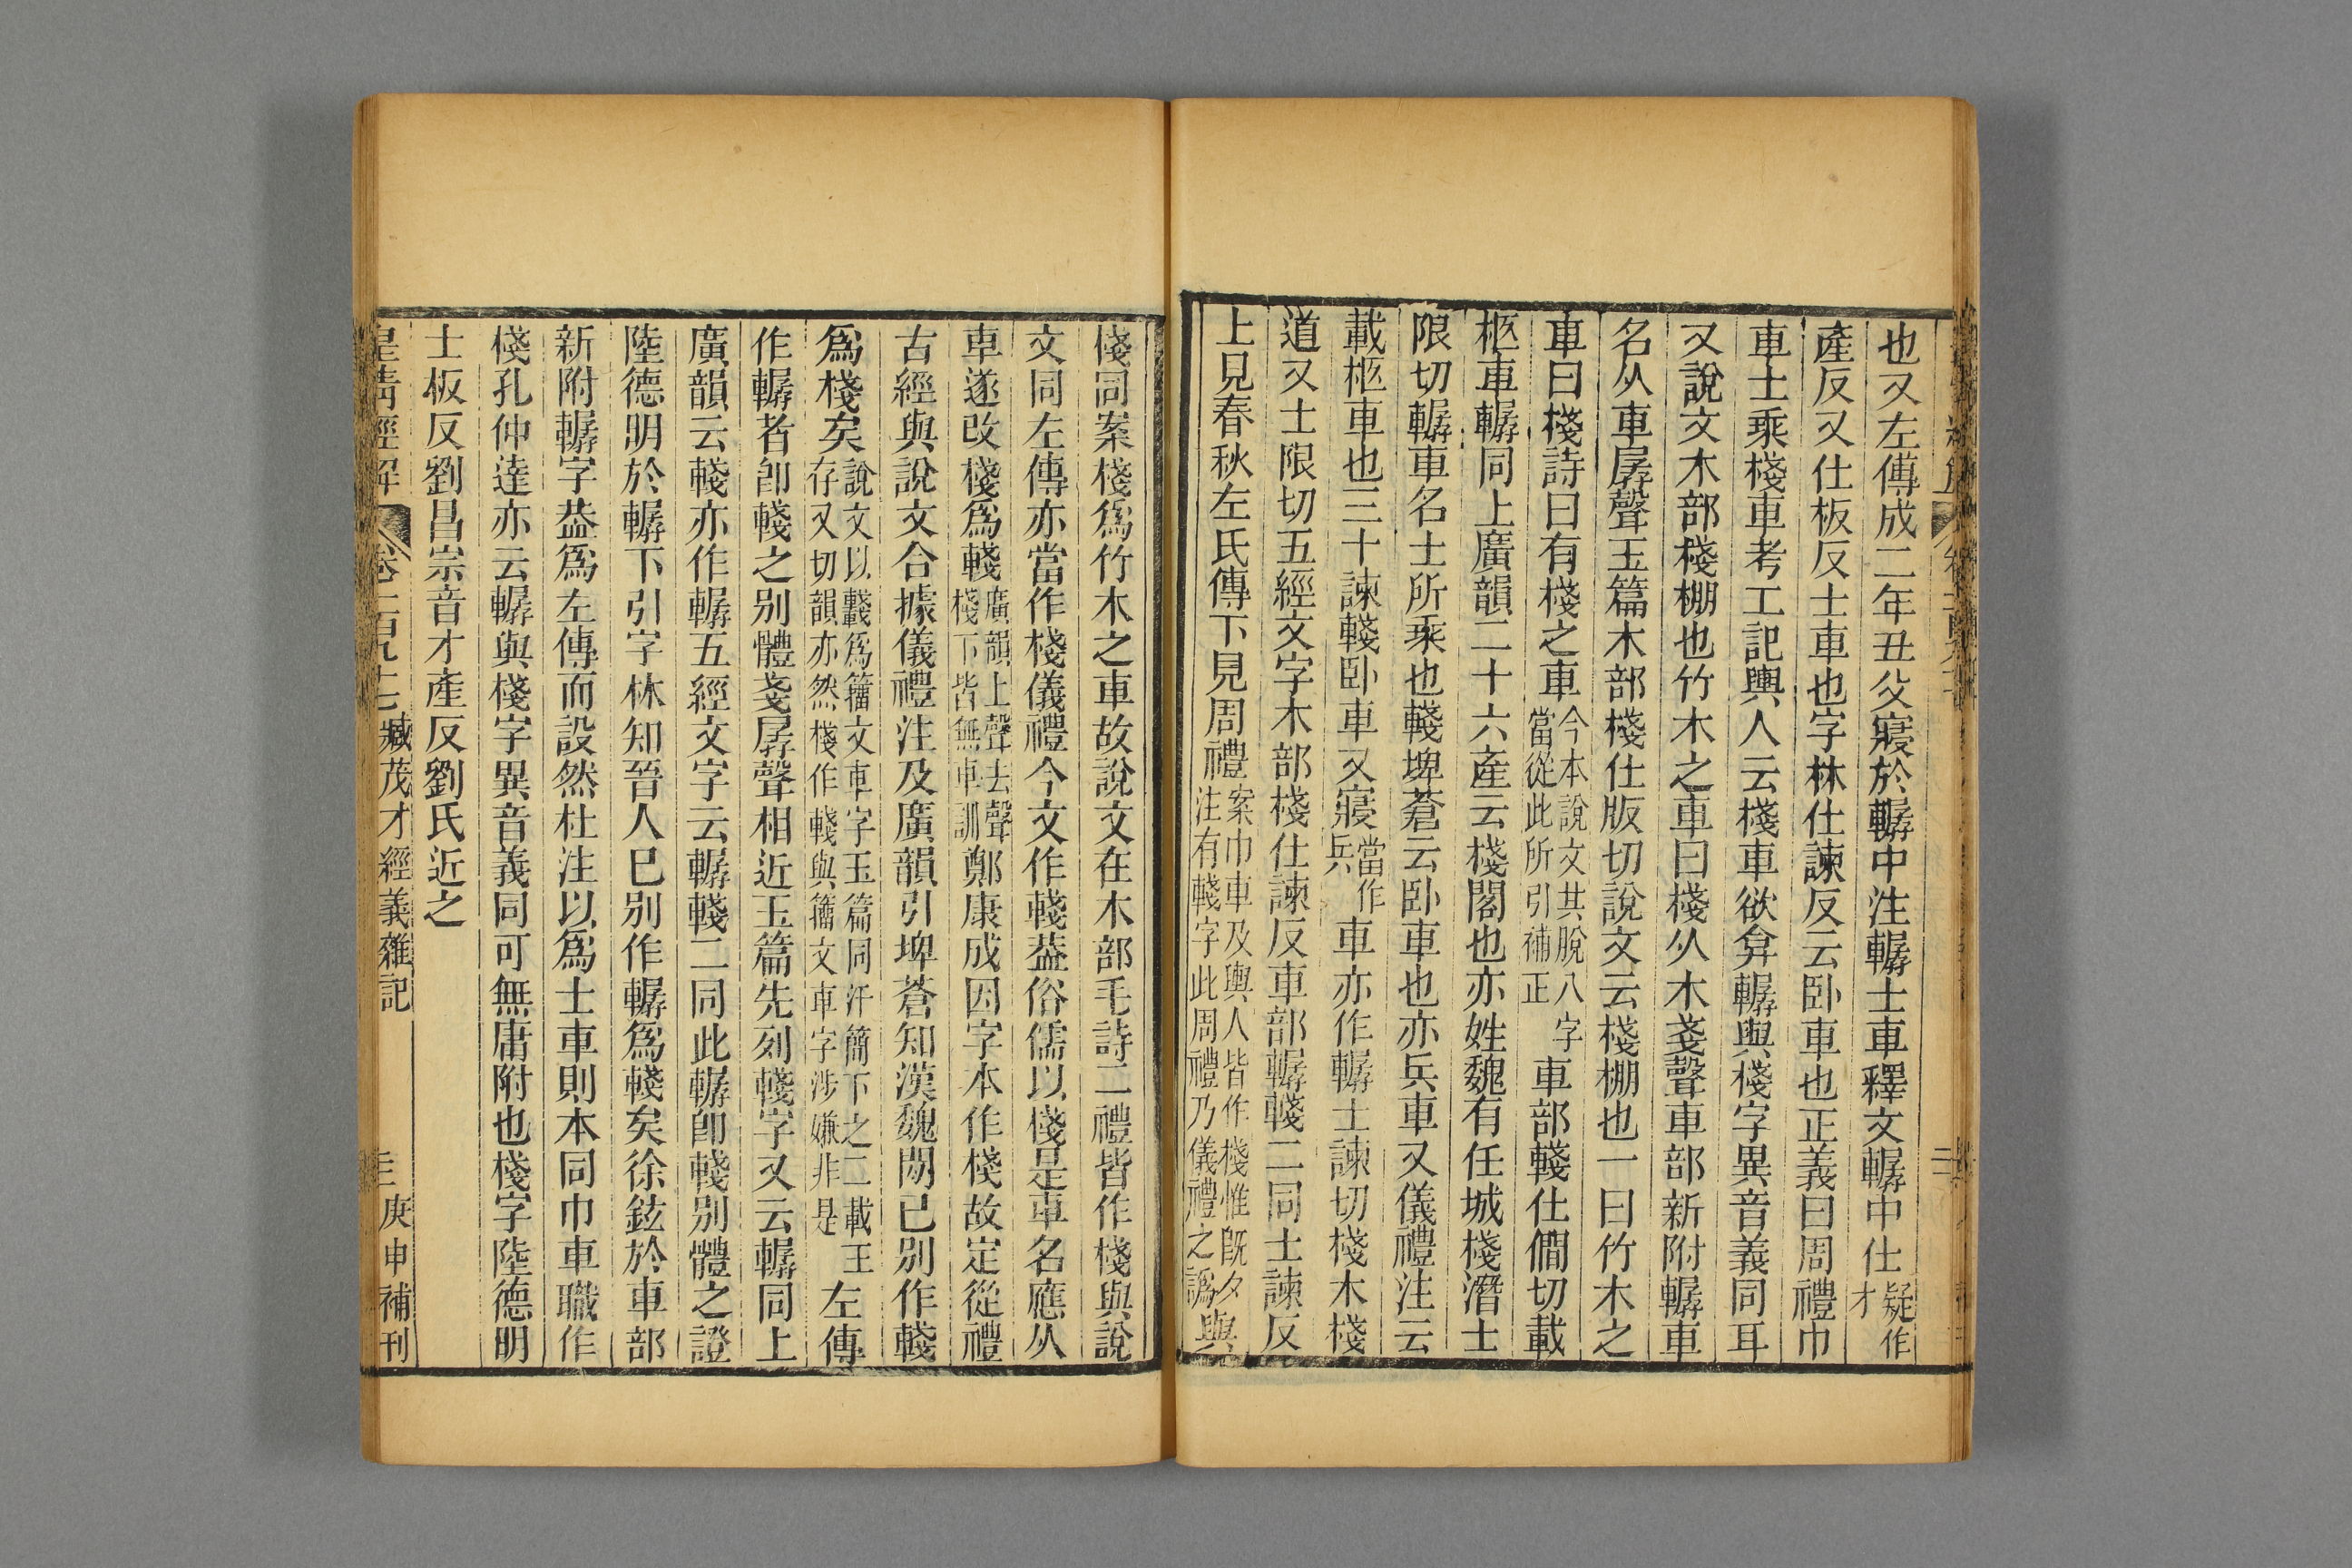 也又左傳成二年丑父寢於轏中注轏士車釋文轏中仕疑作才
產反又仕板反士車也字林仕諫反云卧車也正義曰周禮巾
車士乘棧車考工記輿人云棧車欲弇轏與棧字異音義同耳
又說文木部棧棚也竹木之車曰棧从木戔聲車部新附轏車
名从車孱聲玉篇木部棧仕版切說文云棧棚也一曰竹木之
車曰棧詩曰有棧之車今本說文其脫八字當從此所引補正車部轏仕僴切載
柩車轏同上廣韻二十六產云棧閣也亦姓魏有任城棧潛士
限切轏車名士所乘也輚埤蒼云卧車也亦兵車又儀禮注云
載柩車也三十諫輚卧車又寢當作兵車亦作轏士諫切棧木棧
道又士限切五經文字木部棧仕諫反車部轏輚二同士諫反
上見春秋左氏傳下見周禮案巾車及輿人皆作棧惟既夕注有輚字此周禮乃儀禮之譌與
棧同案棧爲竹木之車故說文在木部毛詩二禮皆作棧與說
文同左傳亦當作棧儀禮今文作輚葢俗儒以棧是車名應从
車遂改棧爲輚廣韻上聲去聲棧下皆無車訓鄭康成因字本作棧故定從禮
古經與說文合據儀禮注及廣韻引埤蒼知漢魏閒已別作輚
爲棧矣說文以轚爲籀文車字玉篇同汗簡下之二載王存乂切韻亦然棧作輚與籀文車字涉嫌非是左傳
作轏者卽輚之別體戔孱聲相近玉篇先列輚字又云轏同上
廣韻云輚亦作轏五經文字云轏輚二同此轏卽輚別體之證
陸德明於轏下引字林知晉人已別作轏爲輚矣徐鉉於車部
新附轏字葢爲左傳而設然杜注以爲士車則本同巾車職作
棧孔仲達亦云轏與棧字異音義同可無庸附也棧字陸德明
士板反劉昌宗音才產反劉氏近之
皇清經解 卷二百九十七臧茂才經義雜記 三 庚申補刊